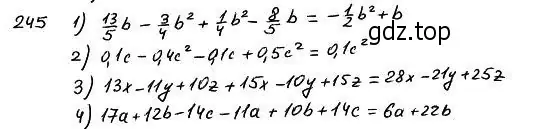 245 1) 13/5 b - 3/4 b² + 1/4 b² - 8/5 b = -1/2 b² + b
2) 0,1c - 0,4c² - 0,1c + 0,5c² = 0,1c²
3) 13x - 11y + 10z + 15x - 10y + 15z = 28x - 21y + 25z
4) 17a + 12b - 14c - 11a + 10b + 14c = 6a + 22b